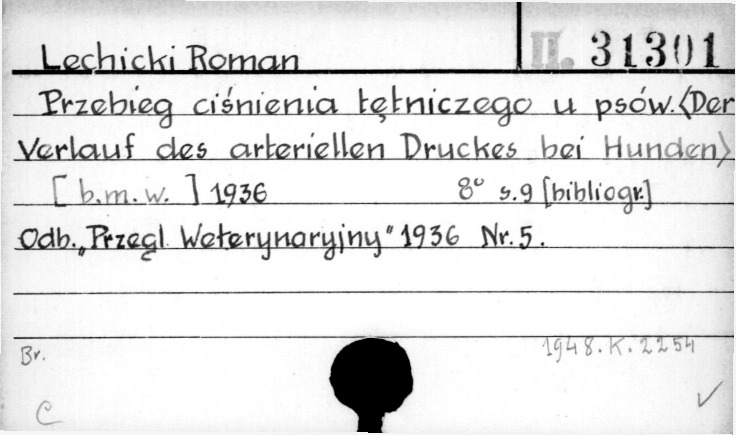 Lechicki Roman II. 31301
Przebieg ciśnienia tętniczego u psów. <Der
Verlauf des arteriellen Druckes bei Hunden>
[b.m.w.] 1936 8° s.9 [bibliogr.]
Odb. „Przegl. Weterynaryjny" 1936 Nr. 5.
Br. 1948.K.2254
C ✓